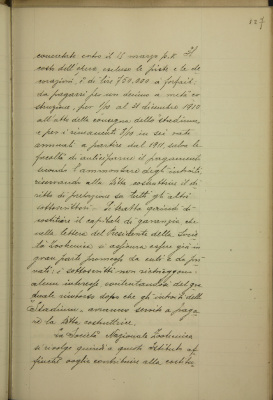 127
concretate, entro il 15 marzo p.v. Il
costo dell'opera, escluse le piste e le de-
corazioni, è di lire 750.000 a forfait
da pagarsi per un decimo a metà co-
struzione, per 4/10 al 31 dicembre 1910
all'atto della consegna dello Stadium,
e per i rimanenti 5/10 in sei rate
annuali a partire dal 1911, salvo la
facoltà di anticiparne il pagamento
secondo l'ammontare degli introiti,
riservando alla Ditta costruttrice il di
ritto di prelazione su tutti gli altri
sottoscrittori. Si tratta quindi di
costituire il capitale di garanzia che
nella lettera del Presidente della Socie
tà Zootecnica si afferma essere già in
gran parte promesso da enti e da pri
vati; i sottoscritti non richieggono
alcun interesse contentandosi del gra
duale rimborso dopo che gli introiti dello
Stadium, avranno servito a paga
re la Ditta costruttrice.
La Società Nazionale Zootecnica
si rivolge quindi a questo Istituto af
finché voglia contribuire alla costitu